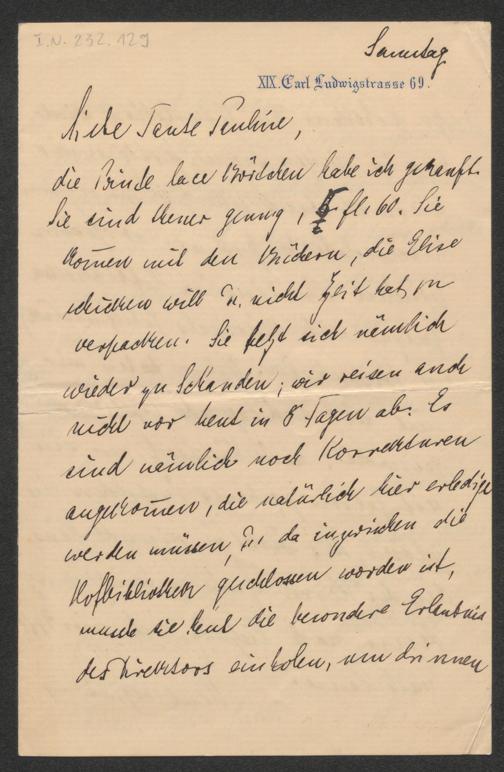 I.N. 232.129
Samstag
XIX. Carl Ludwigstrasse 69.
Liebe Tante Pauline,
die Pinde lace Höschen habe ich gekauft.
Sie sind theuer genug, fl. 60. Sie
kom̄en mit den Büchern, die Elise
schicken will u. nicht Zeit hat, zu
verpacken. Sie hetzt sich nämlich
wieder zu Schanden; wir reisen auch
nicht vor heut in 8 Tagen ab. Es
sind nämlich noch Korrekturen
angekom̄en, die natürlich hier erledigt
werden müssen, u. da inzwischen die
Hofbibliothek geschlossen worden ist,
musste sie heut die besondere Erlaubnis
des Direktors einholen, um drinnen